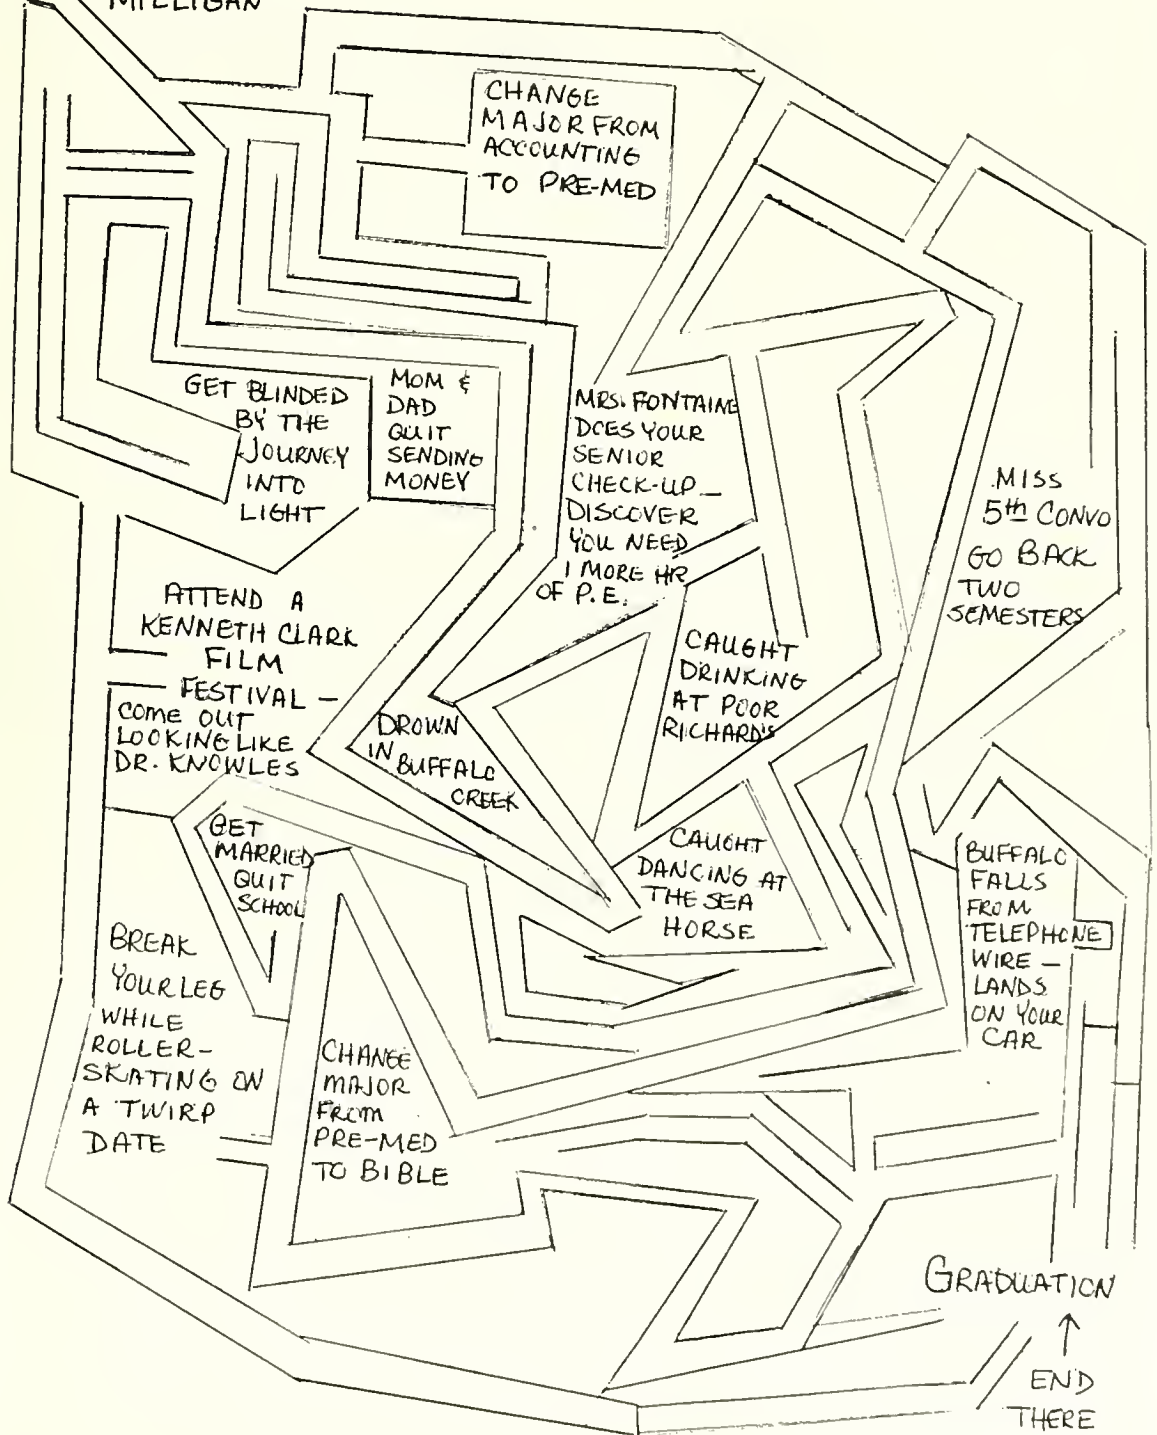 MILLIGAN
CHANGE
MAJOR FROM
ACCOUNTING
TO PRE-MED
GET BLINDED
BY THE
JOURNEY
INTO
LIGHT
MOM &
DAD
QUIT
SENDING
MONEY
MRS. FONTAINE
DOES YOUR
SENIOR
CHECK-UP —
DISCOVER
YOU NEED
1 MORE HR
OF P.E.
MISS
5th CONVO
GO BACK
TWO
SEMESTERS
ATTEND A
KENNETH CLARK
FILM
FESTIVAL —
COME OUT
LOOKING LIKE
DR. KNOWLES
CAUGHT
DRINKING
AT POOR
RICHARD'S
DROWN
IN BUFFALO
CREEK
GET
MARRIED
QUIT
SCHOOL
CAUGHT
DANCING AT
THE SEA
HORSE
BUFFALO
FALLS
FROM
TELEPHONE
WIRE —
LANDS
ON YOUR
CAR
BREAK
YOUR LEG
WHILE
ROLLER-
SKATING ON
A TWIRP
DATE
CHANGE
MAJOR
FROM
PRE-MED
TO BIBLE
GRADUATION
↑
END
THERE